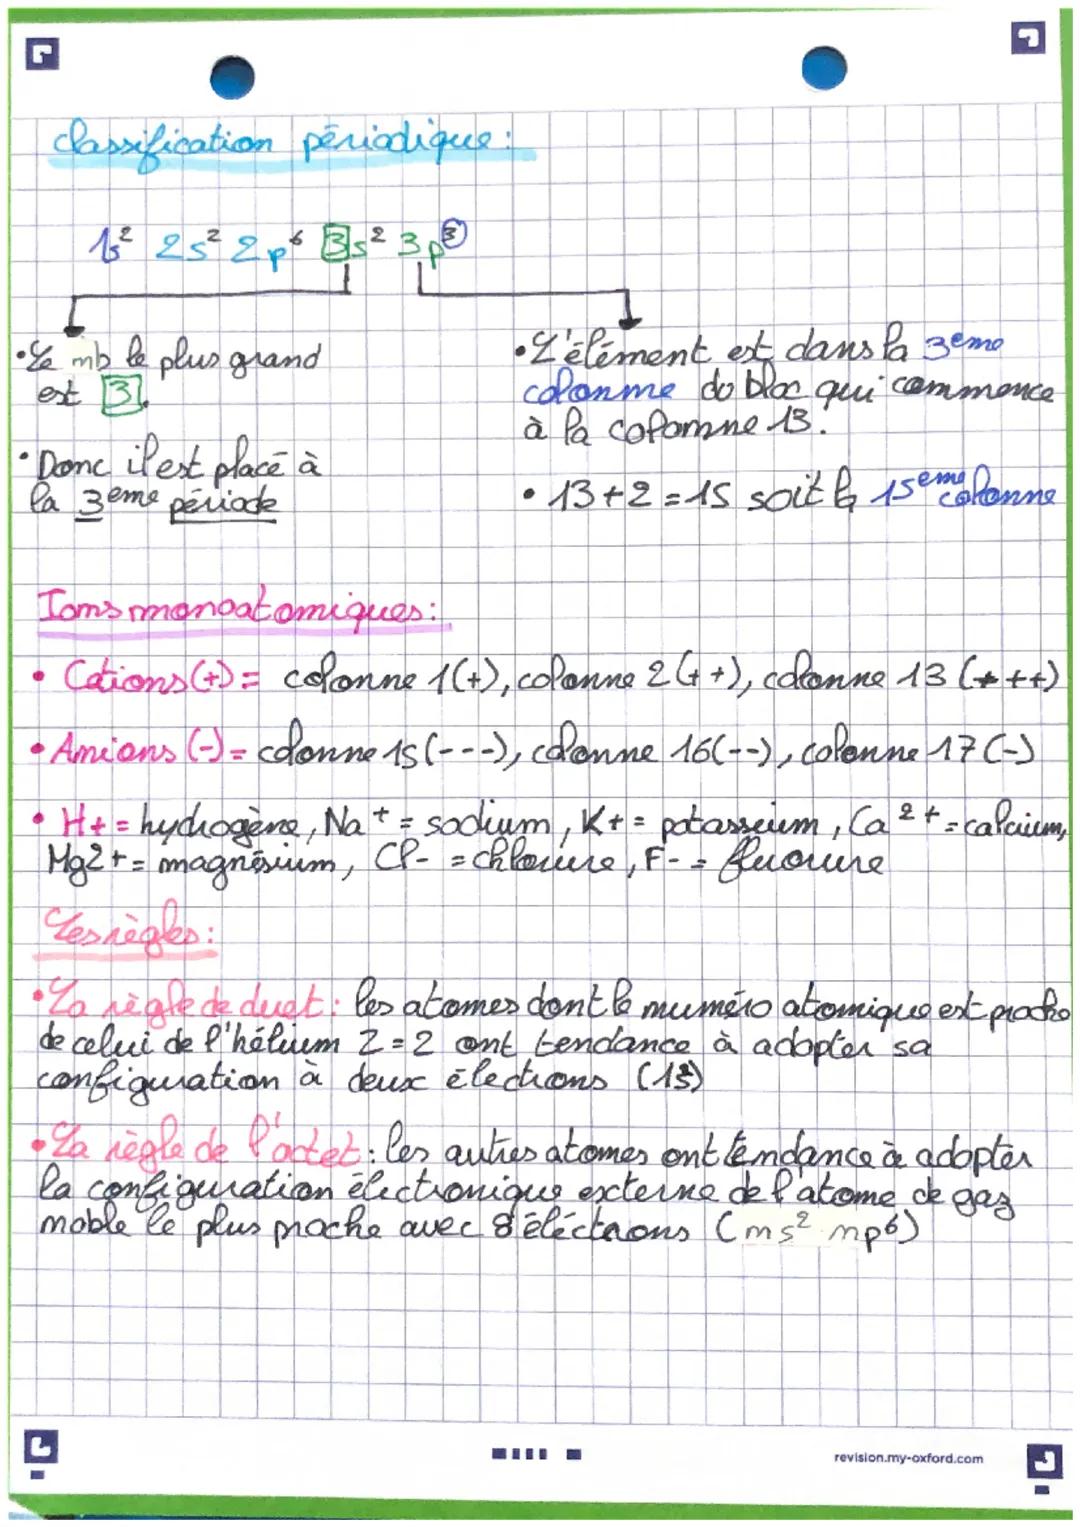 Classification périodique :
1s² 2s² 2p⁶ 3s² 3p³
• Le nb le plus grand
est 3.
• Donc il est placé à
la 3eme période
• L'élément est dans la 3eme
colonne do bloc qui commence
à la colonne 13.
• 13+2=15 soit la 15eme colonne
Ions monoatomiques :
• Cations (+) = colonne 1(+), colonne 2(++), colonne 13 (+++)
• Anions (-) = colonne 15(---), colonne 16(--), colonne 17(-)
• H+ = hydrogène, Na + = sodium, K+ = potasseium, Ca 2+ = calcium,
Mg2+ = magnésium, Cl- = chlorure, F- = fluorure
Les règles :
• La règle de duet : les atomes dont le numéro atomique est proche
de celui de l'hélium Z=2 ont tendance à adopter sa
configuration à deux électrons (1s²)
• La règle de l'octet : les autres atomes ont tendance à adopter
la configuration électronique externe de l'atome de gaz
noble le plus proche avec 8 éléctrons (ns² np⁶)
revision.my-oxford.com